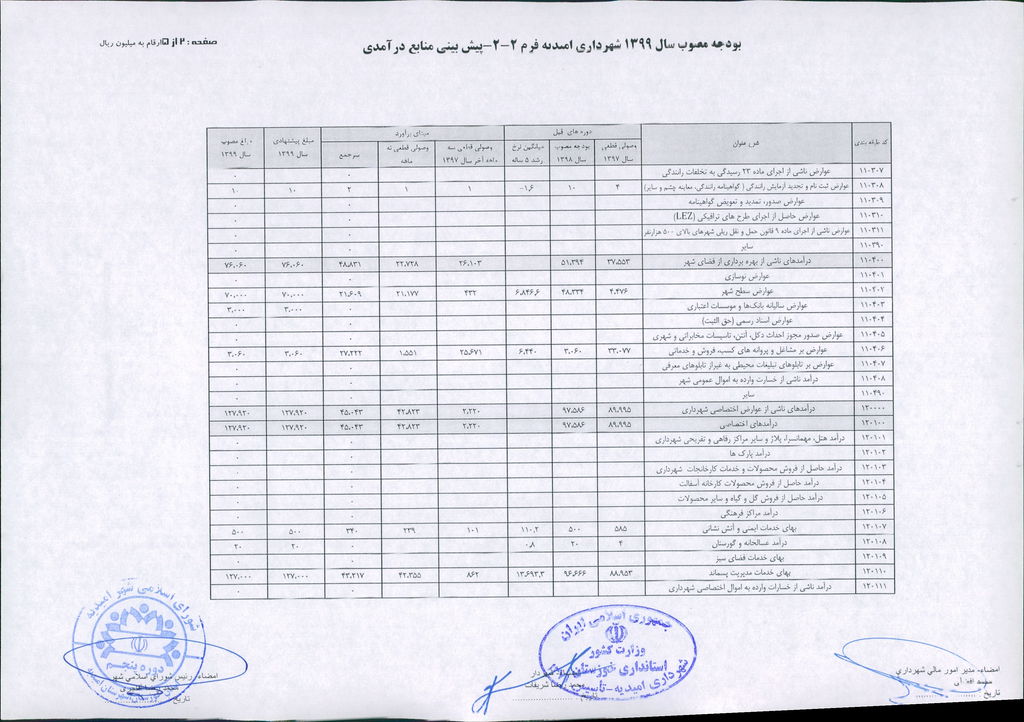 بودجه مصوب سال ۱۳۹۹ شهرداری امیدیه فرم ۲-۲-پیش بینی منابع درآمدی
صفحه : ۲ از ۵ ارقام به میلیون ریال
کد طبقه بندی شرح عنوان دوره های قبل مبنای برآورد مبلغ پیشنهادی سال ۱۳۹۹ مبلغ مصوب سال ۱۳۹۹
وصولی قطعی سال ۱۳۹۷ بودجه مصوب سال ۱۳۹۸ میانگین نرخ رشد ۵ ساله وصولی قطعی سه ماهه آخر سال ۱۳۹۷ وصولی قطعی نه ماهه سرجمع
۱۱۰۳۰۷ عوارض ناشی از اجرای ماده ۲۳ رسیدگی به تخلفات رانندگی ۰ ۰ ۰
۱۱۰۳۰۸ عوارض ثبت نام و تجدید آزمایش رانندگی ( گواهینامه رانندگی، معاینه چشم و سایر) ۴ ۱۰ -۱,۶ ۱ ۱ ۲ ۱۰ ۱۰
۱۱۰۳۰۹ عوارض صدور، تمدید و تعویض گواهینامه ۰ ۰ ۰
۱۱۰۳۱۰ عوارض حاصل از اجرای طرح های ترافیکی (LEZ) ۰ ۰ ۰
۱۱۰۳۱۱ عوارض ناشی از اجرای ماده ۹ قانون حمل و نقل ریلی شهرهای بالای ۵۰۰ هزارنفر ۰ ۰ ۰
۱۱۰۳۹۰ سایر ۰ ۰ ۰
۱۱۰۴۰۰ درآمدهای ناشی از بهره برداری از فضای شهر ۳۷,۵۵۳ ۵۱,۳۹۴ ۲۶,۱۰۳ ۲۲,۷۲۸ ۴۸,۸۳۱ ۷۶,۰۶۰ ۷۶,۰۶۰
۱۱۰۴۰۱ عوارض نوسازی ۰ ۰ ۰
۱۱۰۴۰۲ عوارض سطح شهر ۴,۴۷۶ ۴۸,۳۳۴ ۶,۸۴۶,۶ ۴۳۲ ۲۱,۱۷۷ ۲۱,۶۰۹ ۷۰,۰۰۰ ۷۰,۰۰۰
۱۱۰۴۰۳ عوارض سالیانه بانک‌ها و موسسات اعتباری ۰ ۳,۰۰۰ ۳,۰۰۰
۱۱۰۴۰۴ عوارض اسناد رسمی (حق الثبت) ۰ ۰ ۰
۱۱۰۴۰۵ عوارض صدور مجوز احداث دکل، آنتن، تاسیسات مخابراتی و شهری ۰ ۰ ۰
۱۱۰۴۰۶ عوارض بر مشاغل و پروانه های کسب، فروش و خدماتی ۳۳,۰۷۷ ۳,۰۶۰ ۶,۴۴۰ ۲۵,۶۷۱ ۱,۵۵۱ ۲۷,۲۲۲ ۳,۰۶۰ ۳,۰۶۰
۱۱۰۴۰۷ عوارض بر تابلوهای تبلیغات محیطی به غیراز تابلوهای معرفی ۰ ۰ ۰
۱۱۰۴۰۸ درآمد ناشی از خسارت وارده به اموال عمومی شهر ۰ ۰ ۰
۱۱۰۴۹۰ سایر ۰ ۰ ۰
۱۲۰۰۰۰ درآمدهای ناشی از عوارض اختصاصی شهرداری ۸۹,۹۹۵ ۹۷,۵۸۶ ۲,۲۲۰ ۴۲,۸۲۳ ۴۵,۰۴۳ ۱۲۷,۹۲۰ ۱۲۷,۹۲۰
۱۲۰۱۰۰ درآمدهای اختصاصی ۸۹,۹۹۵ ۹۷,۵۸۶ ۲,۲۲۰ ۴۲,۸۲۳ ۴۵,۰۴۳ ۱۲۷,۹۲۰ ۱۲۷,۹۲۰
۱۲۰۱۰۱ درآمد هتل، مهمانسرا، پلاژ و سایر مراکز رفاهی و تفریحی شهرداری ۰ ۰ ۰
۱۲۰۱۰۲ درآمد پارک ها ۰ ۰ ۰
۱۲۰۱۰۳ درآمد حاصل از فروش محصولات و خدمات کارخانجات شهرداری ۰ ۰ ۰
۱۲۰۱۰۴ درآمد حاصل از فروش محصولات کارخانه آسفالت ۰ ۰ ۰
۱۲۰۱۰۵ درآمد حاصل از فروش گل و گیاه و سایر محصولات ۰ ۰ ۰
۱۲۰۱۰۶ درآمد مراکز فرهنگی ۰ ۰ ۰
۱۲۰۱۰۷ بهای خدمات ایمنی و آتش نشانی ۵۸۵ ۵۰۰ ۱۱۰,۲ ۱۰۱ ۲۳۹ ۳۴۰ ۵۰۰ ۵۰۰
۱۲۰۱۰۸ درآمد غسالخانه و گورستان ۴ ۲۰ ۰,۸ ۰ ۲۰ ۲۰
۱۲۰۱۰۹ بهای خدمات فضای سبز ۰ ۰ ۰
۱۲۰۱۱۰ بهای خدمات مدیریت پسماند ۸۸,۹۵۳ ۹۶,۶۶۶ ۱۳,۶۹۳,۳ ۸۶۲ ۴۲,۳۵۵ ۴۳,۲۱۷ ۱۲۷,۰۰۰ ۱۲۷,۰۰۰
۱۲۰۱۱۱ درآمد ناشی از خسارات وارده به اموال اختصاصی شهرداری ۰ ۰ ۰
امضاء- مدیر امور مالی شهرداری
تاریخ
جمهوری اسلامی ایران
وزارت کشور
استانداری خوزستان
شهرداری امیدیه - تأسیس
شریفات
شورای اسلامی شهر امیدیه
دوره پنجم
امضاء- رئیس شورای اسلامی شهر
تاریخ